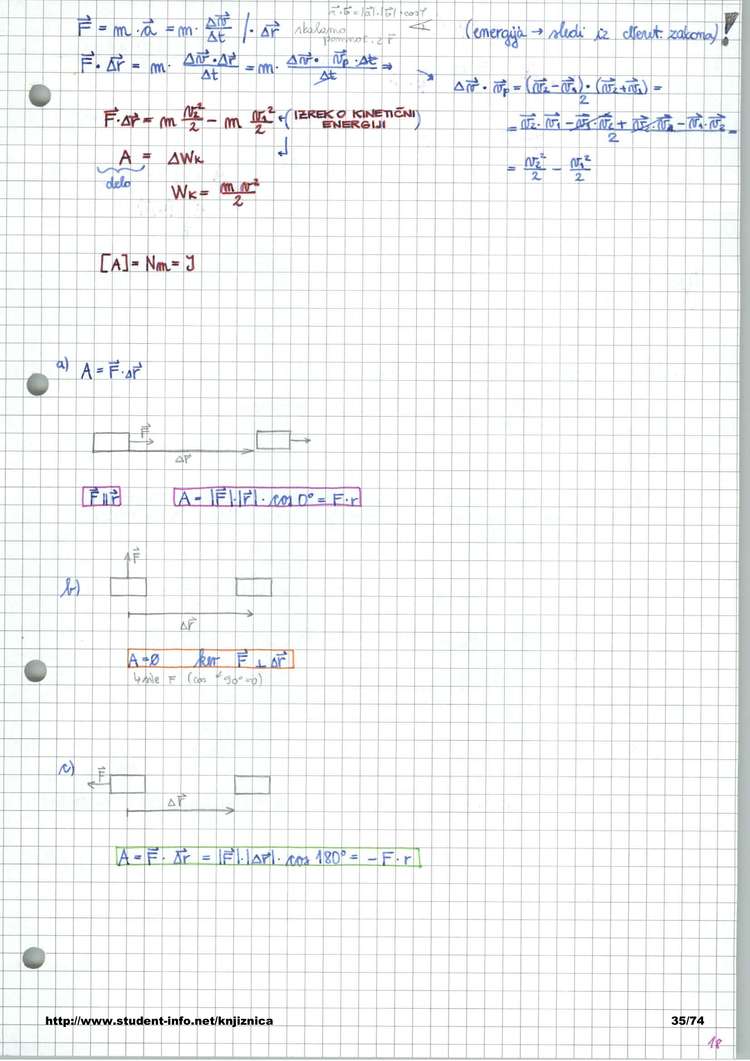 a⃗·b⃗ = |a⃗|·|b⃗|·cosγ
F⃗ = m·a⃗ = m· Δv⃗/Δt /·Δr⃗
skalarno
pomnož. z r⃗
(energija → sledi iz Newt. zakona)!
F⃗·Δr⃗ = m· Δv⃗·Δr⃗/Δt = m· Δv⃗·v⃗p·Δt/Δt ⇒
Δv⃗·v⃗p = (v⃗2-v⃗1)·(v⃗2+v⃗1)/2 =
= v⃗2·v⃗1 - v⃗1·v⃗2 + v⃗2·v⃗2 - v⃗1·v⃗2/2 =
= v2²/2 - v1²/2
F⃗·Δr⃗ = m v2²/2 - m v1²/2 ← (IZREK O KINETIČNI
ENERGIJI)
A = ΔWk
delo
Wk = m v²/2
[A] = Nm = J
a) A = F⃗·Δr⃗
F⃗
Δr⃗
F⃗ || r⃗ A = |F⃗|·|r⃗|·cos 0° = F·r
b)
F⃗
Δr⃗
A=0 ker F⃗ ⊥ Δr⃗
c)
F⃗
Δr⃗
A = F⃗·Δr⃗ = |F⃗|·|Δr⃗|·cos 180° = -F·r
http://www.student-info.net/knjiznica
35/74
18